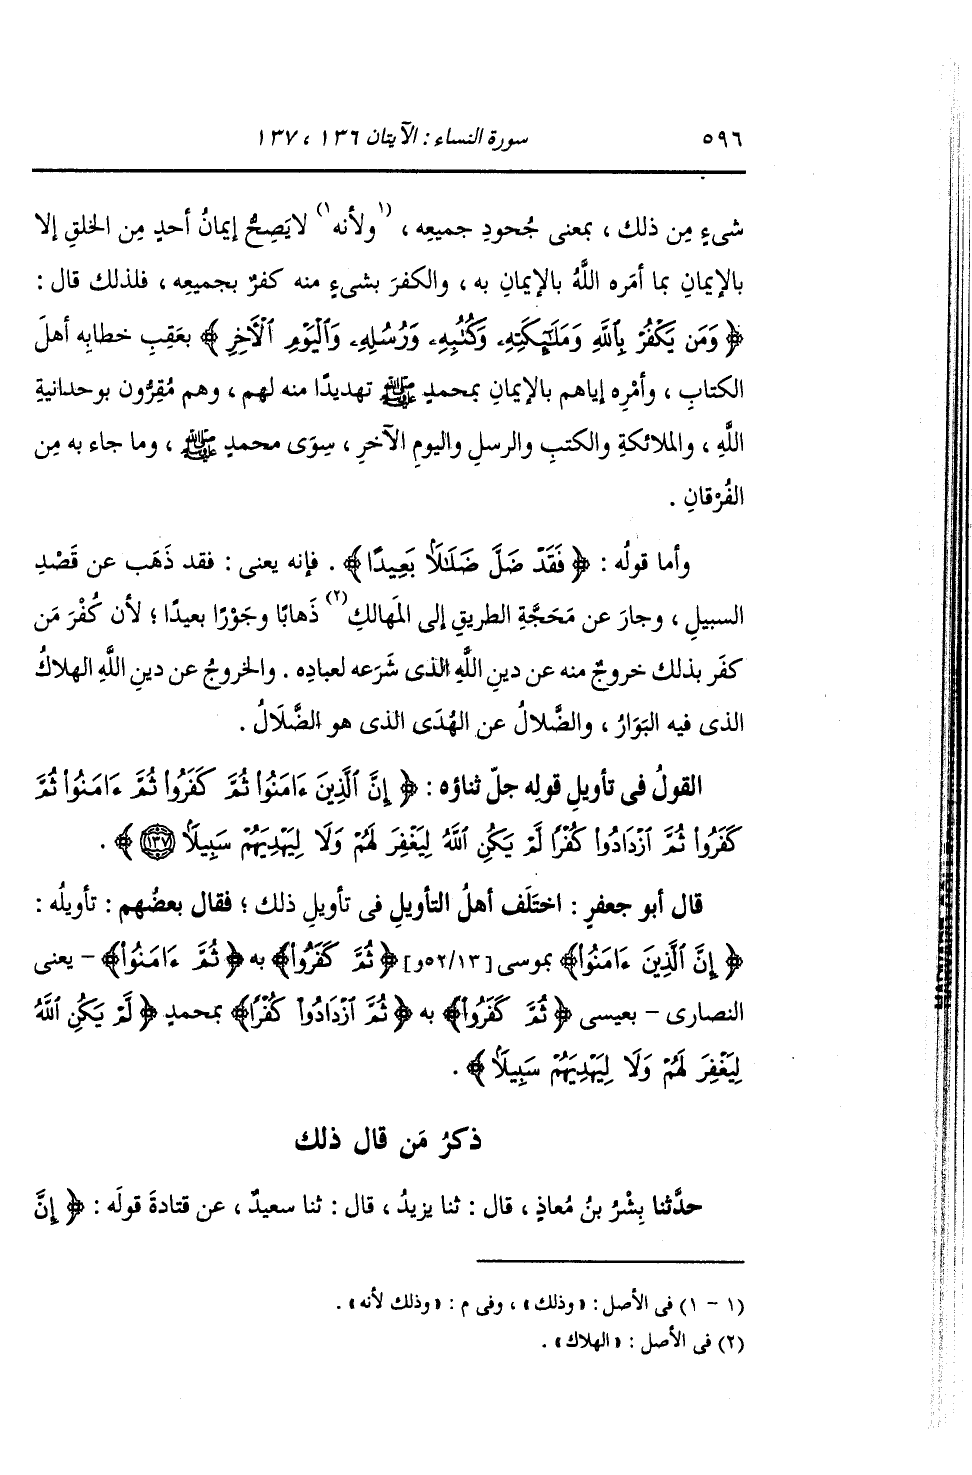 ٥٩٦ سورة النساء : الآيتان ١٣٦ ، ١٣٧
شىءٍ مِن ذلك ، بمعنى جُحودِ جميعِه ، (١ولأنه١) لا يَصِحُّ إيمانُ أحدٍ مِن الخلقِ إلا
بالإيمانِ بما أمَره اللَّهُ بالإيمانِ به ، والكفرَ بشىءٍ منه كفرٌ بجميعِه ، فلذلك قال :
﴿ وَمَن يَكْفُرْ بِٱللَّهِ وَمَلَٰٓئِكَتِهِۦ وَكُتُبِهِۦ وَرُسُلِهِۦ وَٱلْيَوْمِ ٱلْأَخِرِ ﴾ بعَقِبِ خطابِه أهلَ
الكتابِ ، وأمْرِه إياهم بالإيمانِ بمحمدٍ ﷺ تهديدًا منه لهم ، وهم مُقِرُّون بوحدانيةِ
اللَّهِ ، والملائكةِ والكتبِ والرسلِ واليومِ الآخرِ ، سِوَى محمدٍ ﷺ ، وما جاء به مِن
الفُرْقانِ .
وأما قولُه : ﴿ فَقَدْ ضَلَّ ضَلَٰلًا بَعِيدًا ﴾ . فإنه يعنى : فقد ذَهَب عن قَصْدِ
السبيلِ ، وجارَ عن مَحَجَّةِ الطريقِ إلى المَهالكِ(٢) ذَهابًا وجَوْرًا بعيدًا ؛ لأن كُفْرَ مَن
كفَر بذلك خروجٌ منه عن دينِ اللَّهِ الذى شَرَعه لعبادِه . والخروجُ عن دينِ اللَّهِ الهلاكُ
الذى فيه البَوَارُ ، والضَّلالُ عن الهُدَى الذى هو الضَّلَالُ .
القولُ فى تأويلِ قولِه جلّ ثناؤه : ﴿ إِنَّ ٱلَّذِينَ ءَامَنُوا۟ ثُمَّ كَفَرُوا۟ ثُمَّ ءَامَنُوا۟ ثُمَّ
كَفَرُوا۟ ثُمَّ ٱزْدَادُوا۟ كُفْرًا لَّمْ يَكُنِ ٱللَّهُ لِيَغْفِرَ لَهُمْ وَلَا لِيَهْدِيَهُمْ سَبِيلًا ١٣٧ ﴾ .
قال أبو جعفرٍ : اختَلَف أهلُ التأويلِ فى تأويلِ ذلك ؛ فقال بعضُهم : تأويلُه :
﴿ إِنَّ ٱلَّذِينَ ءَامَنُوا۟﴾ بموسى [١٣/ ٥٢و] ﴿ثُمَّ كَفَرُوا۟﴾ به ﴿ ثُمَّ ءَامَنُوا۟﴾ - يعنى
النصارى - بعيسى ﴿ ثُمَّ كَفَرُوا۟﴾ به ﴿ ثُمَّ ٱزْدَادُوا۟ كُفْرًا﴾ بمحمدٍ ﴿ لَّمْ يَكُنِ ٱللَّهُ
لِيَغْفِرَ لَهُمْ وَلَا لِيَهْدِيَهُمْ سَبِيلًا ﴾ .
ذكرُ مَن قال ذلك
حدَّثنا بِشْرُ بنُ مُعاذٍ ، قال : ثنا يزيدُ ، قال : ثنا سعيدٌ ، عن قتادةَ قولَه : ﴿ إِنَّ
(١ - ١) فى الأصل : «وذلك» ، وفى م : «وذلك لأنه» .
(٢) فى الأصل : «الهلاك» .